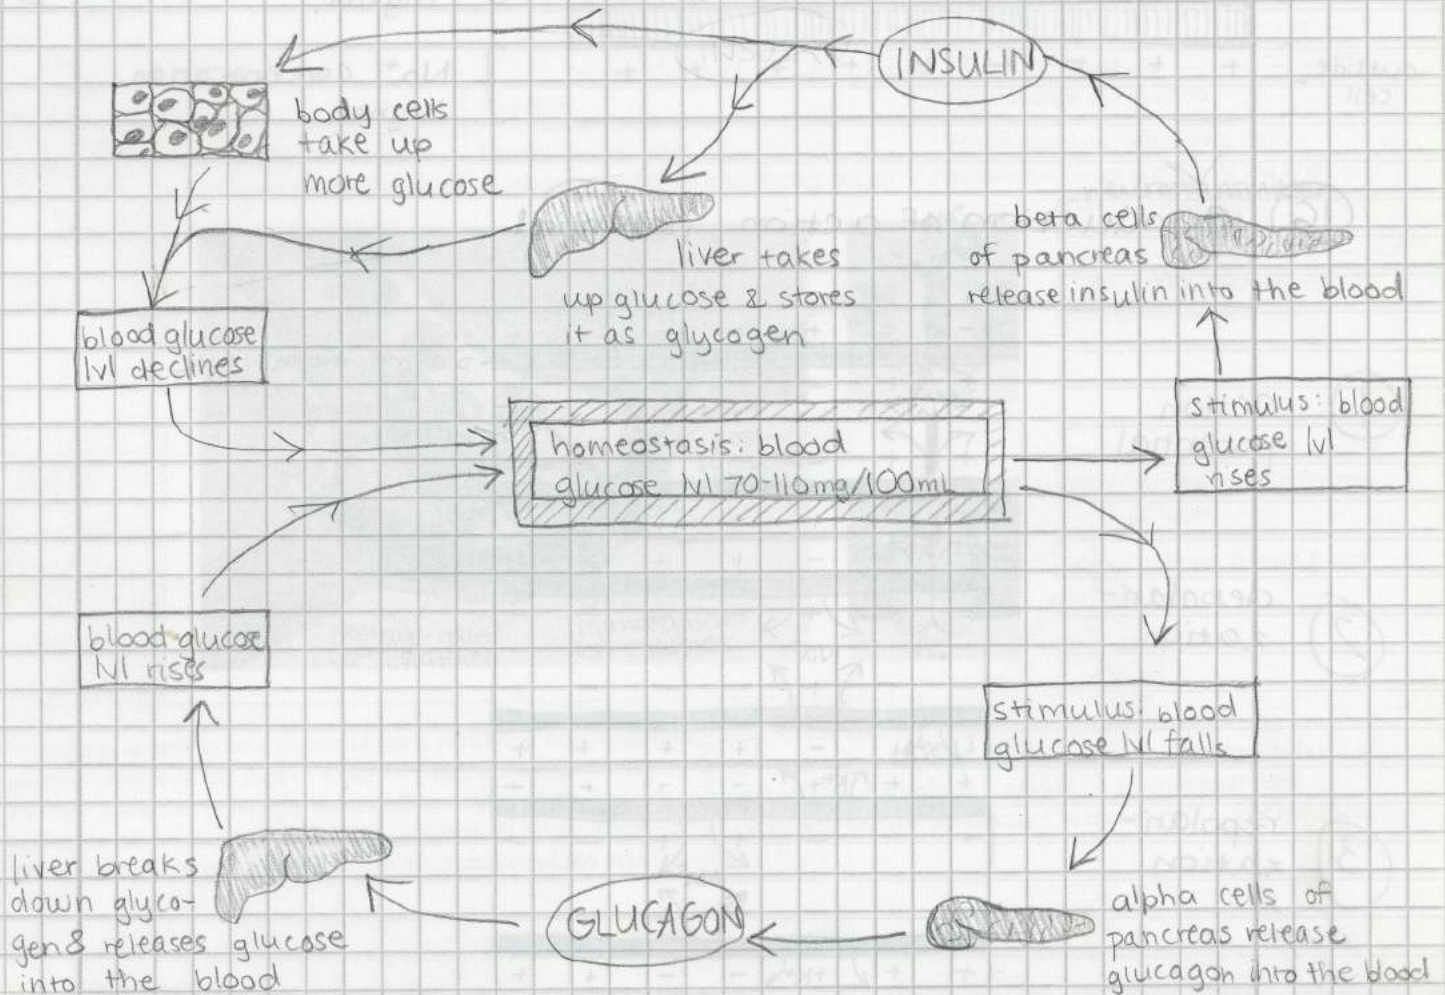 INSULIN
body cells
take up
more glucose
beta cells
of pancreas
release insulin into the blood
liver takes
up glucose & stores
it as glycogen
blood glucose
lvl declines
stimulus: blood
glucose lvl
rises
homeostasis: blood
glucose lvl 70-110mg/100mL
blood glucose
lvl rises
stimulus: blood
glucose lvl falls
liver breaks
down glyco-
gen & releases glucose
into the blood
GLUCAGON
alpha cells of
pancreas release
glucagon into the blood